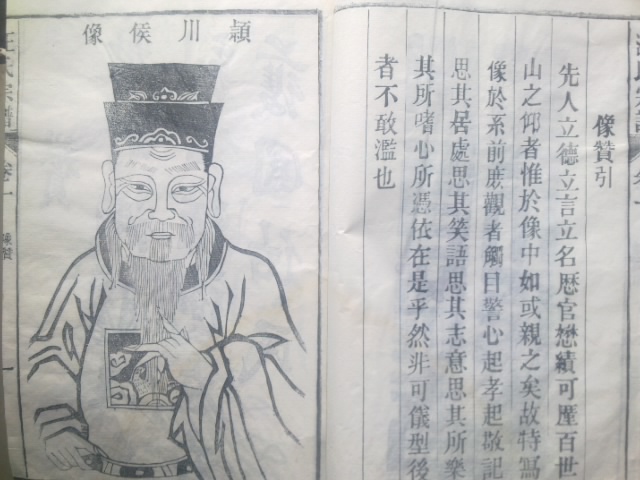 像贊引
先人立德立言立名歷官懋績可壓百世
山之仰者惟於像中如或親之矣故特寫
像於系前庶觀者觸目警心起孝起敬記
思其居處思其笑語思其志意思其所樂
其所嗜心所憑依在是乎然非可儀型後
者不敢濫也
潁川侯像
汪氏宗譜
卷一
像贊
一